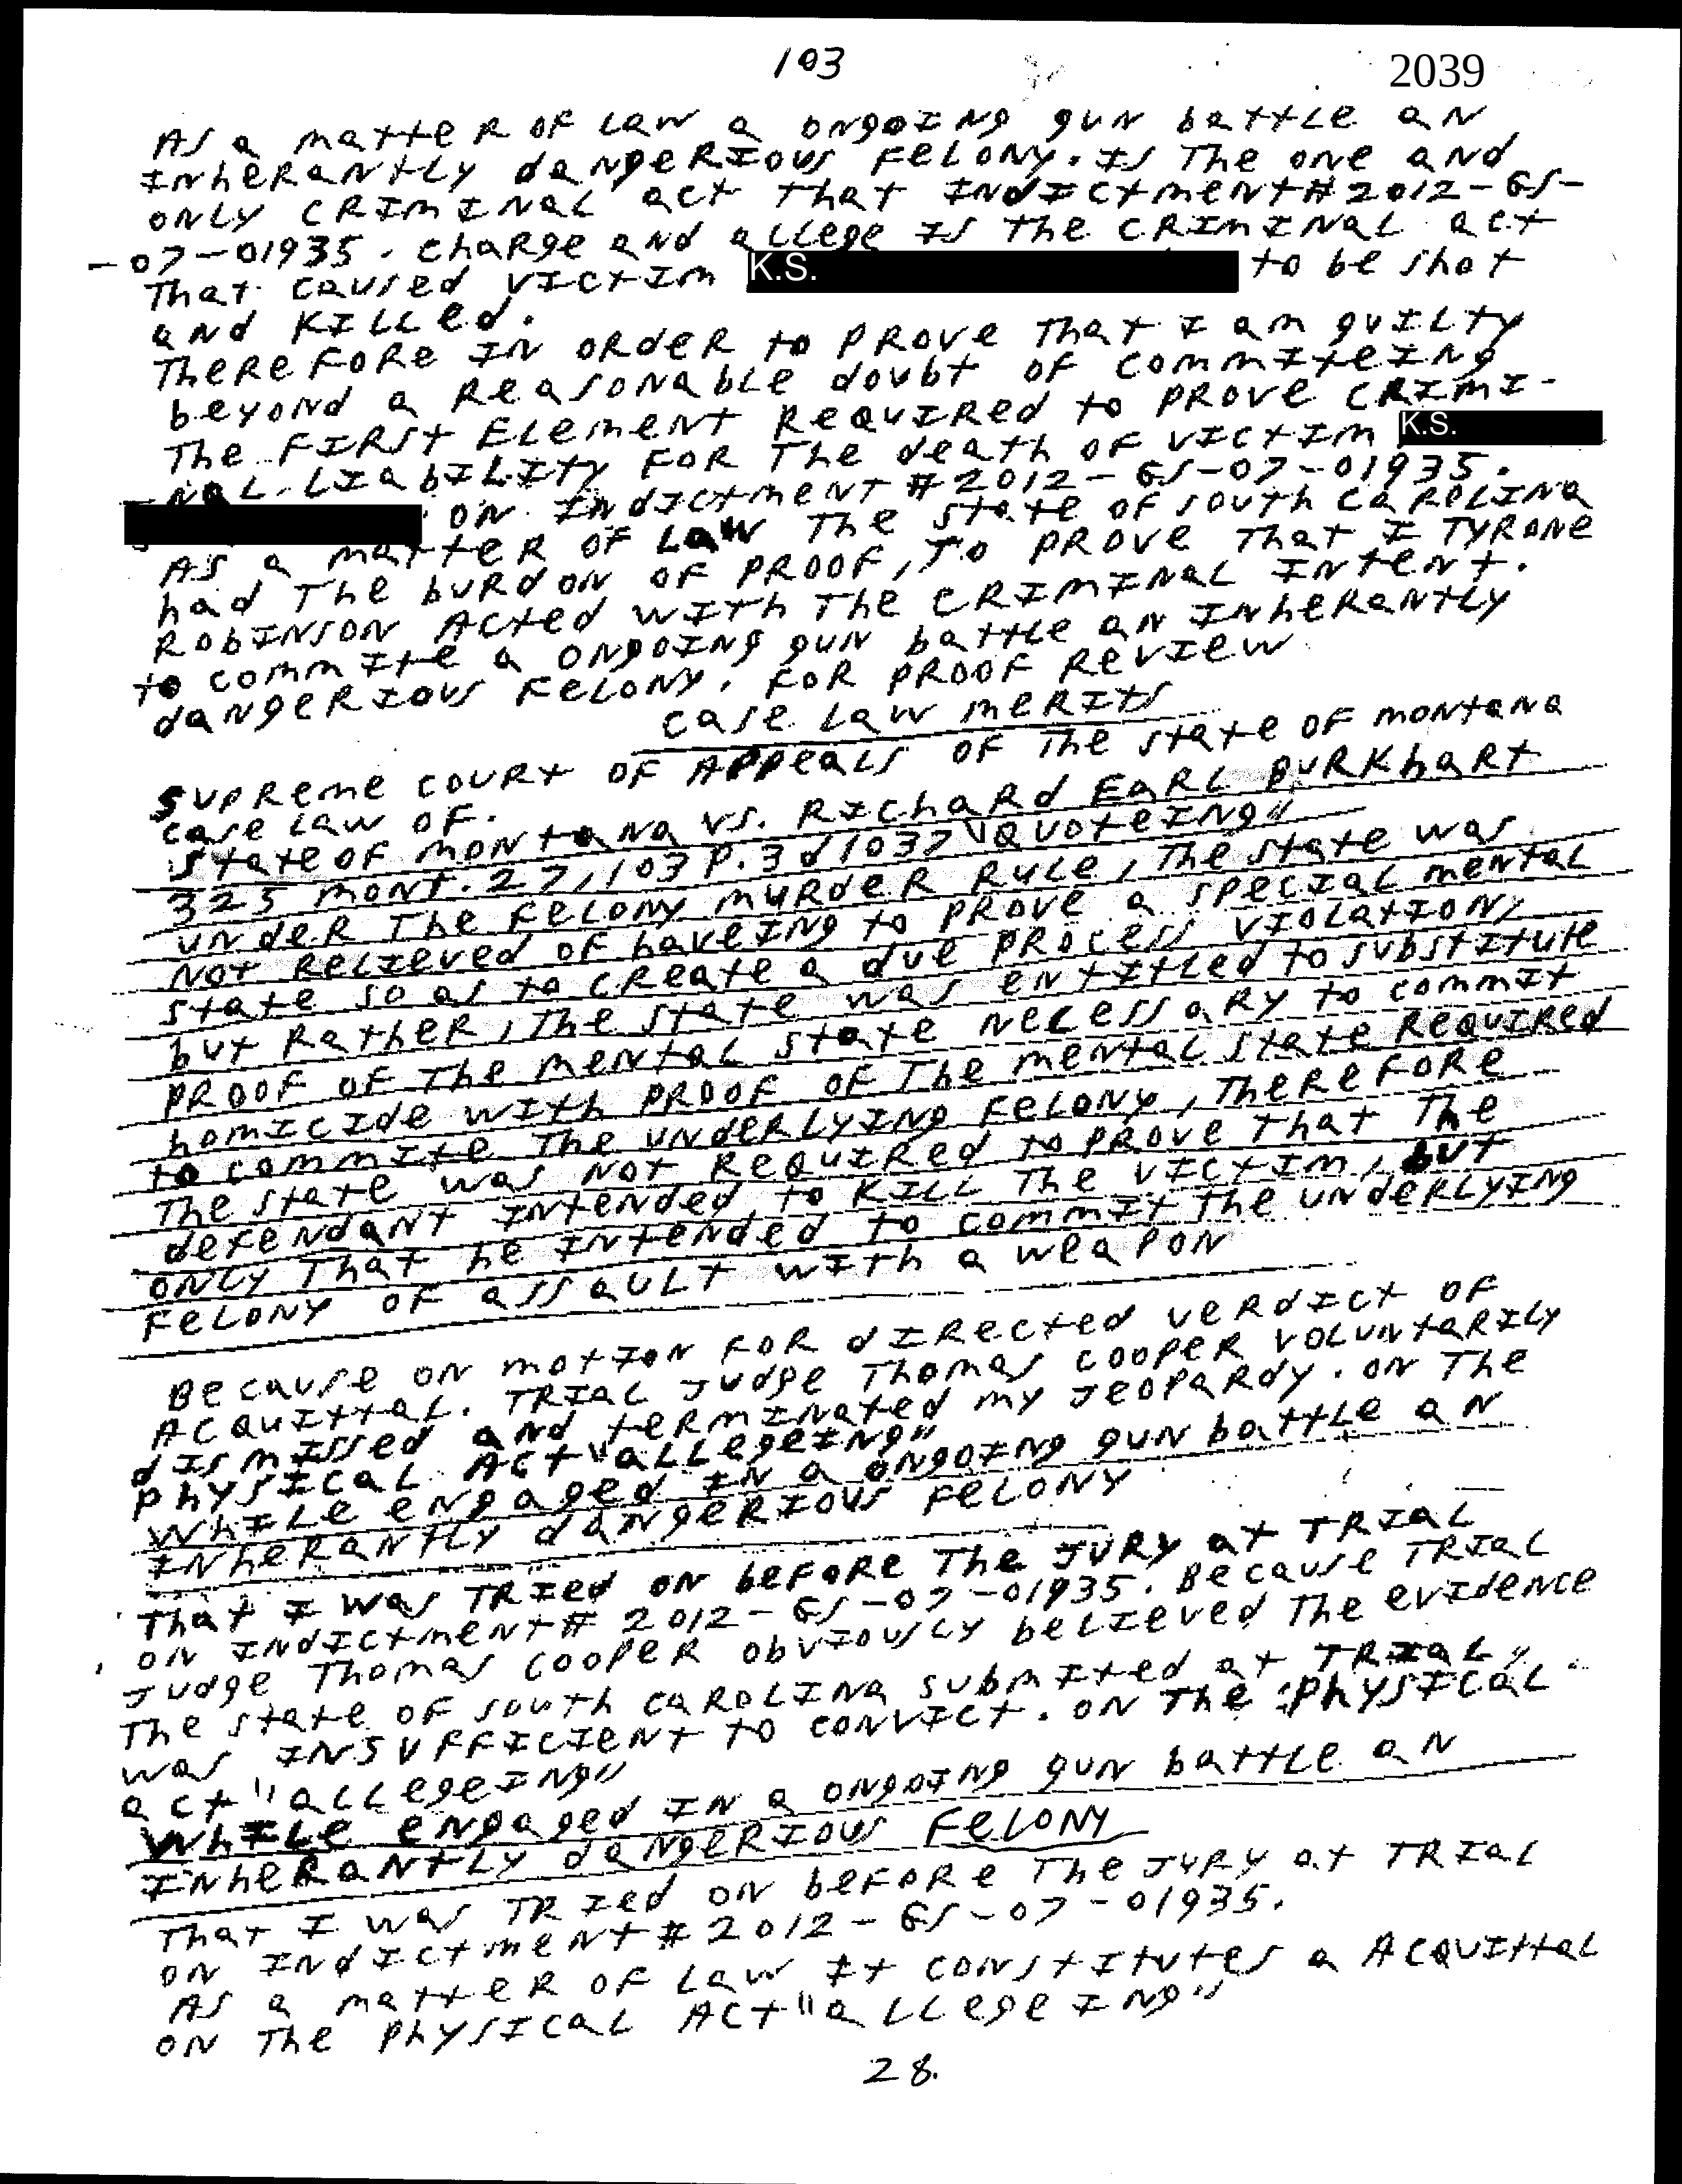 103
2039
As a matter of law a ongoing gun battle an
inherantly dangerious felony. is the one and
only criminal act that indictment# 2012-GS-
-07-01935. charge and allege is the criminal act
that caused victim K.S. to be shot
and killed.
Therefore in order to prove that I am guilty
beyond a reasonable doubt of commiteing
the first element required to prove crimi-
-nal liability for the death of victim K.S.
on indictment # 2012-GS-07-01935.
As a matter of law the state of south carolina
had the burdon of proof, to prove that I Tyrone
Robinson acted with the criminal intent.
to commite a ongoing gun battle an inherantly
dangerious felony. for proof review
case law merits
Supreme court of Appeals of the state of montana
case law of.
State of montana vs. Richard Earl Burkhart
325 mont. 27, 103 P.3d 1037 "quoteing"
under the felony murder rule, the state was
not relieved of haveing to prove a special mental
state so as to create a due process violation,
but rather, the state was entitled to substitute
proof of the mental state necessary to commit
homicide with proof of the mental state required
to commite the underlying felony, therefore
the state was not required to prove that the
defendant intended to kill the victim, but
only that he intended to commit the underlying
felony of assault with a weapon
Because on motion for directed verdict of
acquittal. Trial Judge Thomas Cooper voluntarily
dismissed and terminated my jeopardy. on the
physical act "allegeing"
while engaged in a ongoing gun battle an
inherantly dangerious felony
that I was tried on before the jury at trial
on indictment# 2012-GS-07-01935. Because trial
Judge Thomas Cooper obviously believed the evidence
the state of south carolina submited at trial,
was insufficient to convict. on the physical
act "allegeing"
while engaged in a ongoing gun battle an
inherantly dangerious felony
that I was tried on before the jury at trial
on indictment# 2012-GS-07-01935.
As a matter of law it constitutes a acquittal
on the physical act "allegeing"
28.